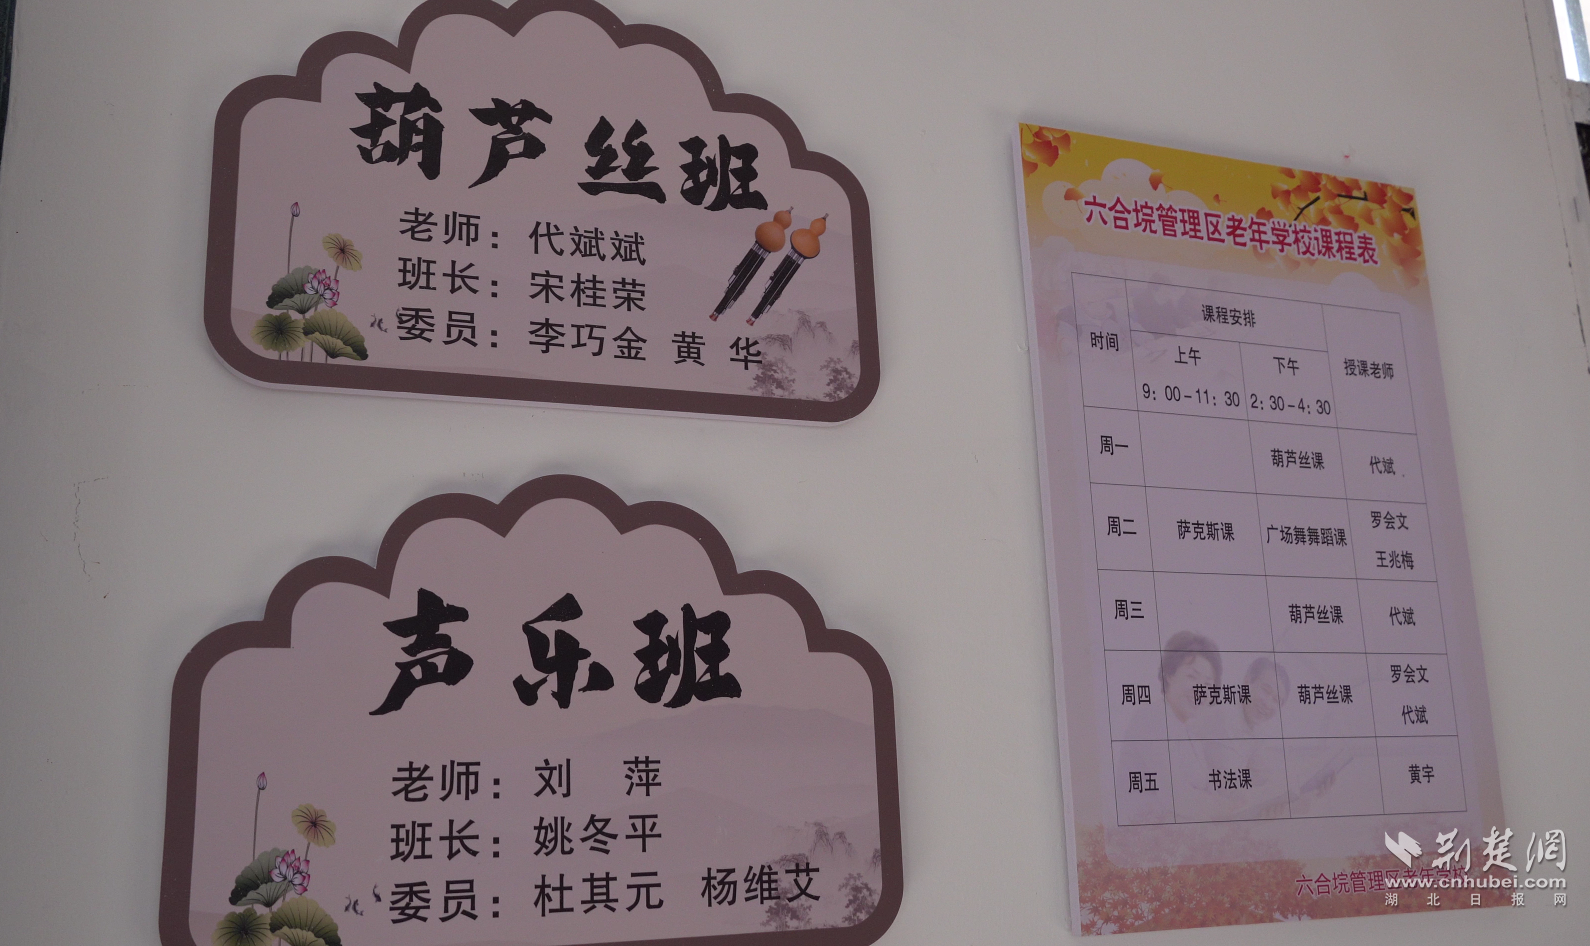 葫芦丝班
老师：代斌斌
班长：宋桂荣
委员：李巧金 黄 华
声乐班
老师：刘 萍
班长：姚冬平
委员：杜其元 杨维艾
六合垸管理区老年学校课程表
时间 课程安排 授课老师
上午 下午
9：00-11：30 2：30-4：30
周一 葫芦丝课 代斌
周二 萨克斯课 广场舞舞蹈课 罗会文
王兆梅
周三 葫芦丝课 代斌
周四 萨克斯课 葫芦丝课 罗会文
代斌
周五 书法课 黄宇
六合垸管理区老年学校
荆楚网
www.cnhubei.com
湖北日报网